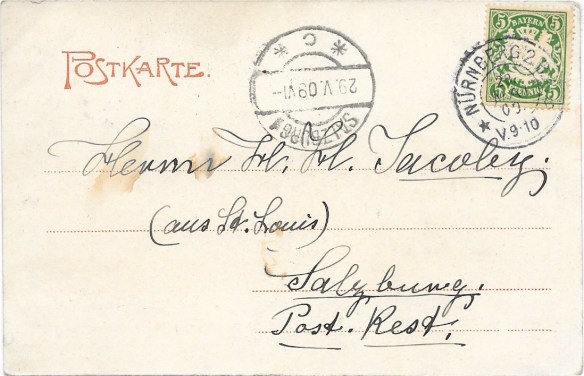 POSTKARTE.
5 BAYERN 5
5 PFENNIG 5
NÜRNBERG 2
V 9-10
SALZBURG 1
29.V.09 VI–
* C *
Herrn H. H. Jacoby.
(aus St. Louis)
Salzburg.
Post. Rest.